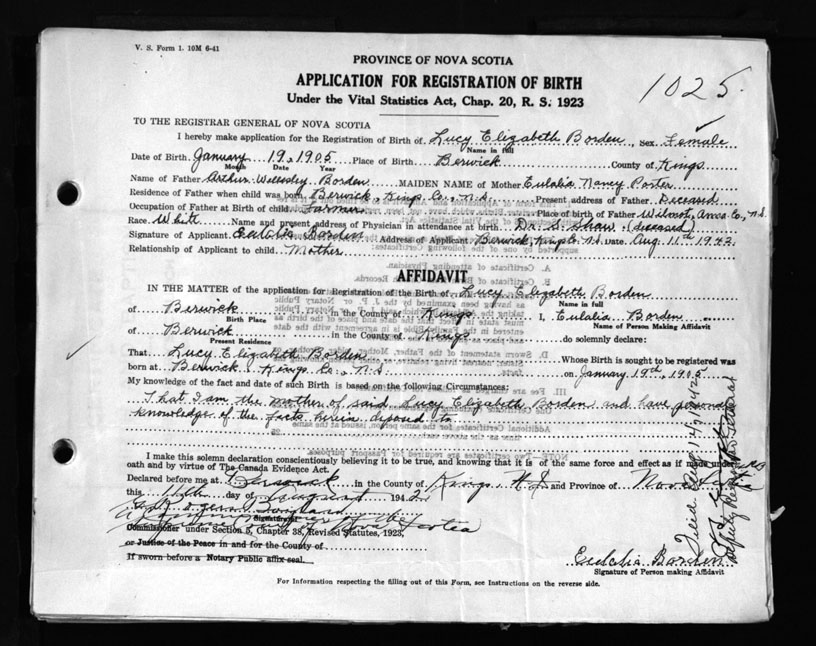 V. S. Form 1. 10M 6-41
PROVINCE OF NOVA SCOTIA
APPLICATION FOR REGISTRATION OF BIRTH
Under the Vital Statistics Act, Chap. 20, R. S. 1923
1025.
TO THE REGISTRAR GENERAL OF NOVA SCOTIA
I hereby make application for the Registration of Birth of Lucy Elizabeth Borden, Sex Female
Name in full
Date of Birth January 19, 1905 Place of Birth Berwick County of Kings
Month Date Year
Name of Father Arthur Wellesley Borden MAIDEN NAME of Mother Eulalia Nancy Porter
Residence of Father when child was born Berwick, Kings Co., N.S. Present address of Father Deceased
Occupation of Father at Birth of child Farmer Place of Birth of Father Wilmot, Anna Co., N.S.
Race White Name and present address of Physician in attendance at birth Dr. S. Shaw (deceased)
Signature of Applicant Eulalia Borden Address of Applicant Berwick, Kings Co. N.S. Date Aug 11th 1942
Relationship of Applicant to child Mother
AFFIDAVIT
IN THE MATTER of the application for Registration of the Birth of Lucy Elizabeth Borden
Name in full
of Berwick in the County of Kings I, Eulalia Borden
Birth Place Name of Person Making Affidavit
of Berwick in the County of Kings do solemnly declare:
Present Residence
That Lucy Elizabeth Borden Whose Birth is sought to be registered was
born at Berwick, Kings Co., N.S. on January 19th, 1905
My knowledge of the fact and date of such Birth is based on the following Circumstances:
That I am the mother of said Lucy Elizabeth Borden and have personal
knowledge of the facts herein deposed to
I make this solemn declaration conscientiously believing it to be true, and knowing that it is of the same force and effect as if made under
oath and by virtue of The Canada Evidence Act.
Declared before me at Berwick in the County of Kings N.S. and Province of Nova Scotia
this 11th day of August 1942
Signature
Nova Scotia
Commissioner under Section 5, Chapter 38, Revised Statutes, 1923,
or Justice of the Peace in and for the County of
If sworn before a Notary Public affix seal.
Eulalia Borden
Signature of Person making Affidavit
For Information respecting the filling out of this Form, see Instructions on the reverse side.
Deputy Registrar General